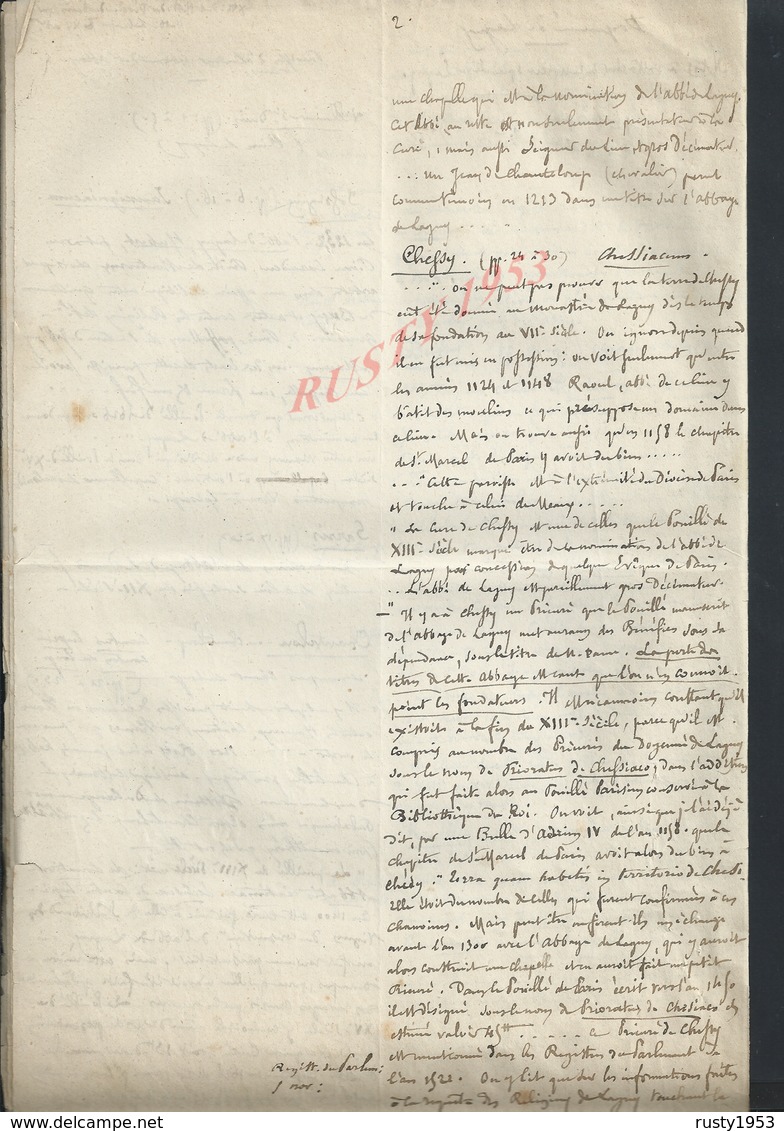 2.
une chapelle qui est à la nomination de l'abbé de Lagny.
Cet Abbé au reste est non seulement présentateur à la
Cure, mais aussi Seigneur du lieu et gros Décimateur.
... un Jean de Chanteloup (chevalier) parut
en 1213 dans un titre sur l'abbaye
de Lagny .....
Chessy. (pp. 24 à 30) Chessiacum.
... on ne peut pas prouver que la terre de Chessy
eut été donnée au monastère de Lagny dès le temps
de sa fondation au VIIe siècle. On ignore depuis quand
il en fut mis en possession: on voit seulement qu'entre
les années 1124 et 1148 Raoul, abbé de ce lieu y
batit des moulins ce qui présuppose un domaine dans
ce lieu. Mais on trouve aussi qu'en 1158 le chapitre
de St Marcel de Paris y avoit du bien .....
.. "Cette paroisse est à l'extrémité du Diocèse de Paris
et touche à celui de Meaux .....
" La Cure de Chessy est une de celles que le Pouillé du
XIIIe siècle marque être de la nomination de l'abbé de
Lagny par concession de quelque Evêque de Paris.
.. L'abbé de Lagny est pareillement gros Décimateur.
— " Il y a à Chessy un Prieuré que le Pouillé manuscrit
de l'abbaye de Lagny met au rang des Bénéfices sous sa
dépendance, sous le titre de N. Dame. La perte des
titres de cette Abbaye est cause que l'on n'en connoit
point les fondateurs. Il est néanmoins constant qu'il
existoit à la fin du XIIIe siècle, parce qu'il est
compris au nombre des Prieurés du Doyenné de Lagny
sous le nom de Prioratus de Chessiaco, dans l'addition
qui fut faite alors au Pouillé Parisien conservé à la
Bibliothèque du Roi. On voit, ainsi que je l'ai déjà
dit, par une Bulle d'Adrien IV de l'an 1158 que le
chapitre de St Marcel de Paris avoit alors du bien à
Chessy: " Terra quam habetis in territorio de
Elle étoit du nombre de celles qui furent confirmées à ces
Chanoines. Mais peut être en firent ils un échange
avant l'an 1300 avec l'Abbaye de Lagny, qui y auroit
alors construit une chapelle et en auroit fait un petit
Prieuré. Dans le Pouillé de Paris écrit vers l'an 1450
il est désigné sous le nom de Prioratus de Chesiaco et
estimé valoir 45 tt ..... Ce Prieuré de Chessy
est mentionné dans les Registres du Parlement de
l'an 1522. On y lit que sur les informations faites
à la requête des Religieux de Lagny touchant le
Regist. du Parlem:
RUSTY 1953
rusty1953
rusty1953